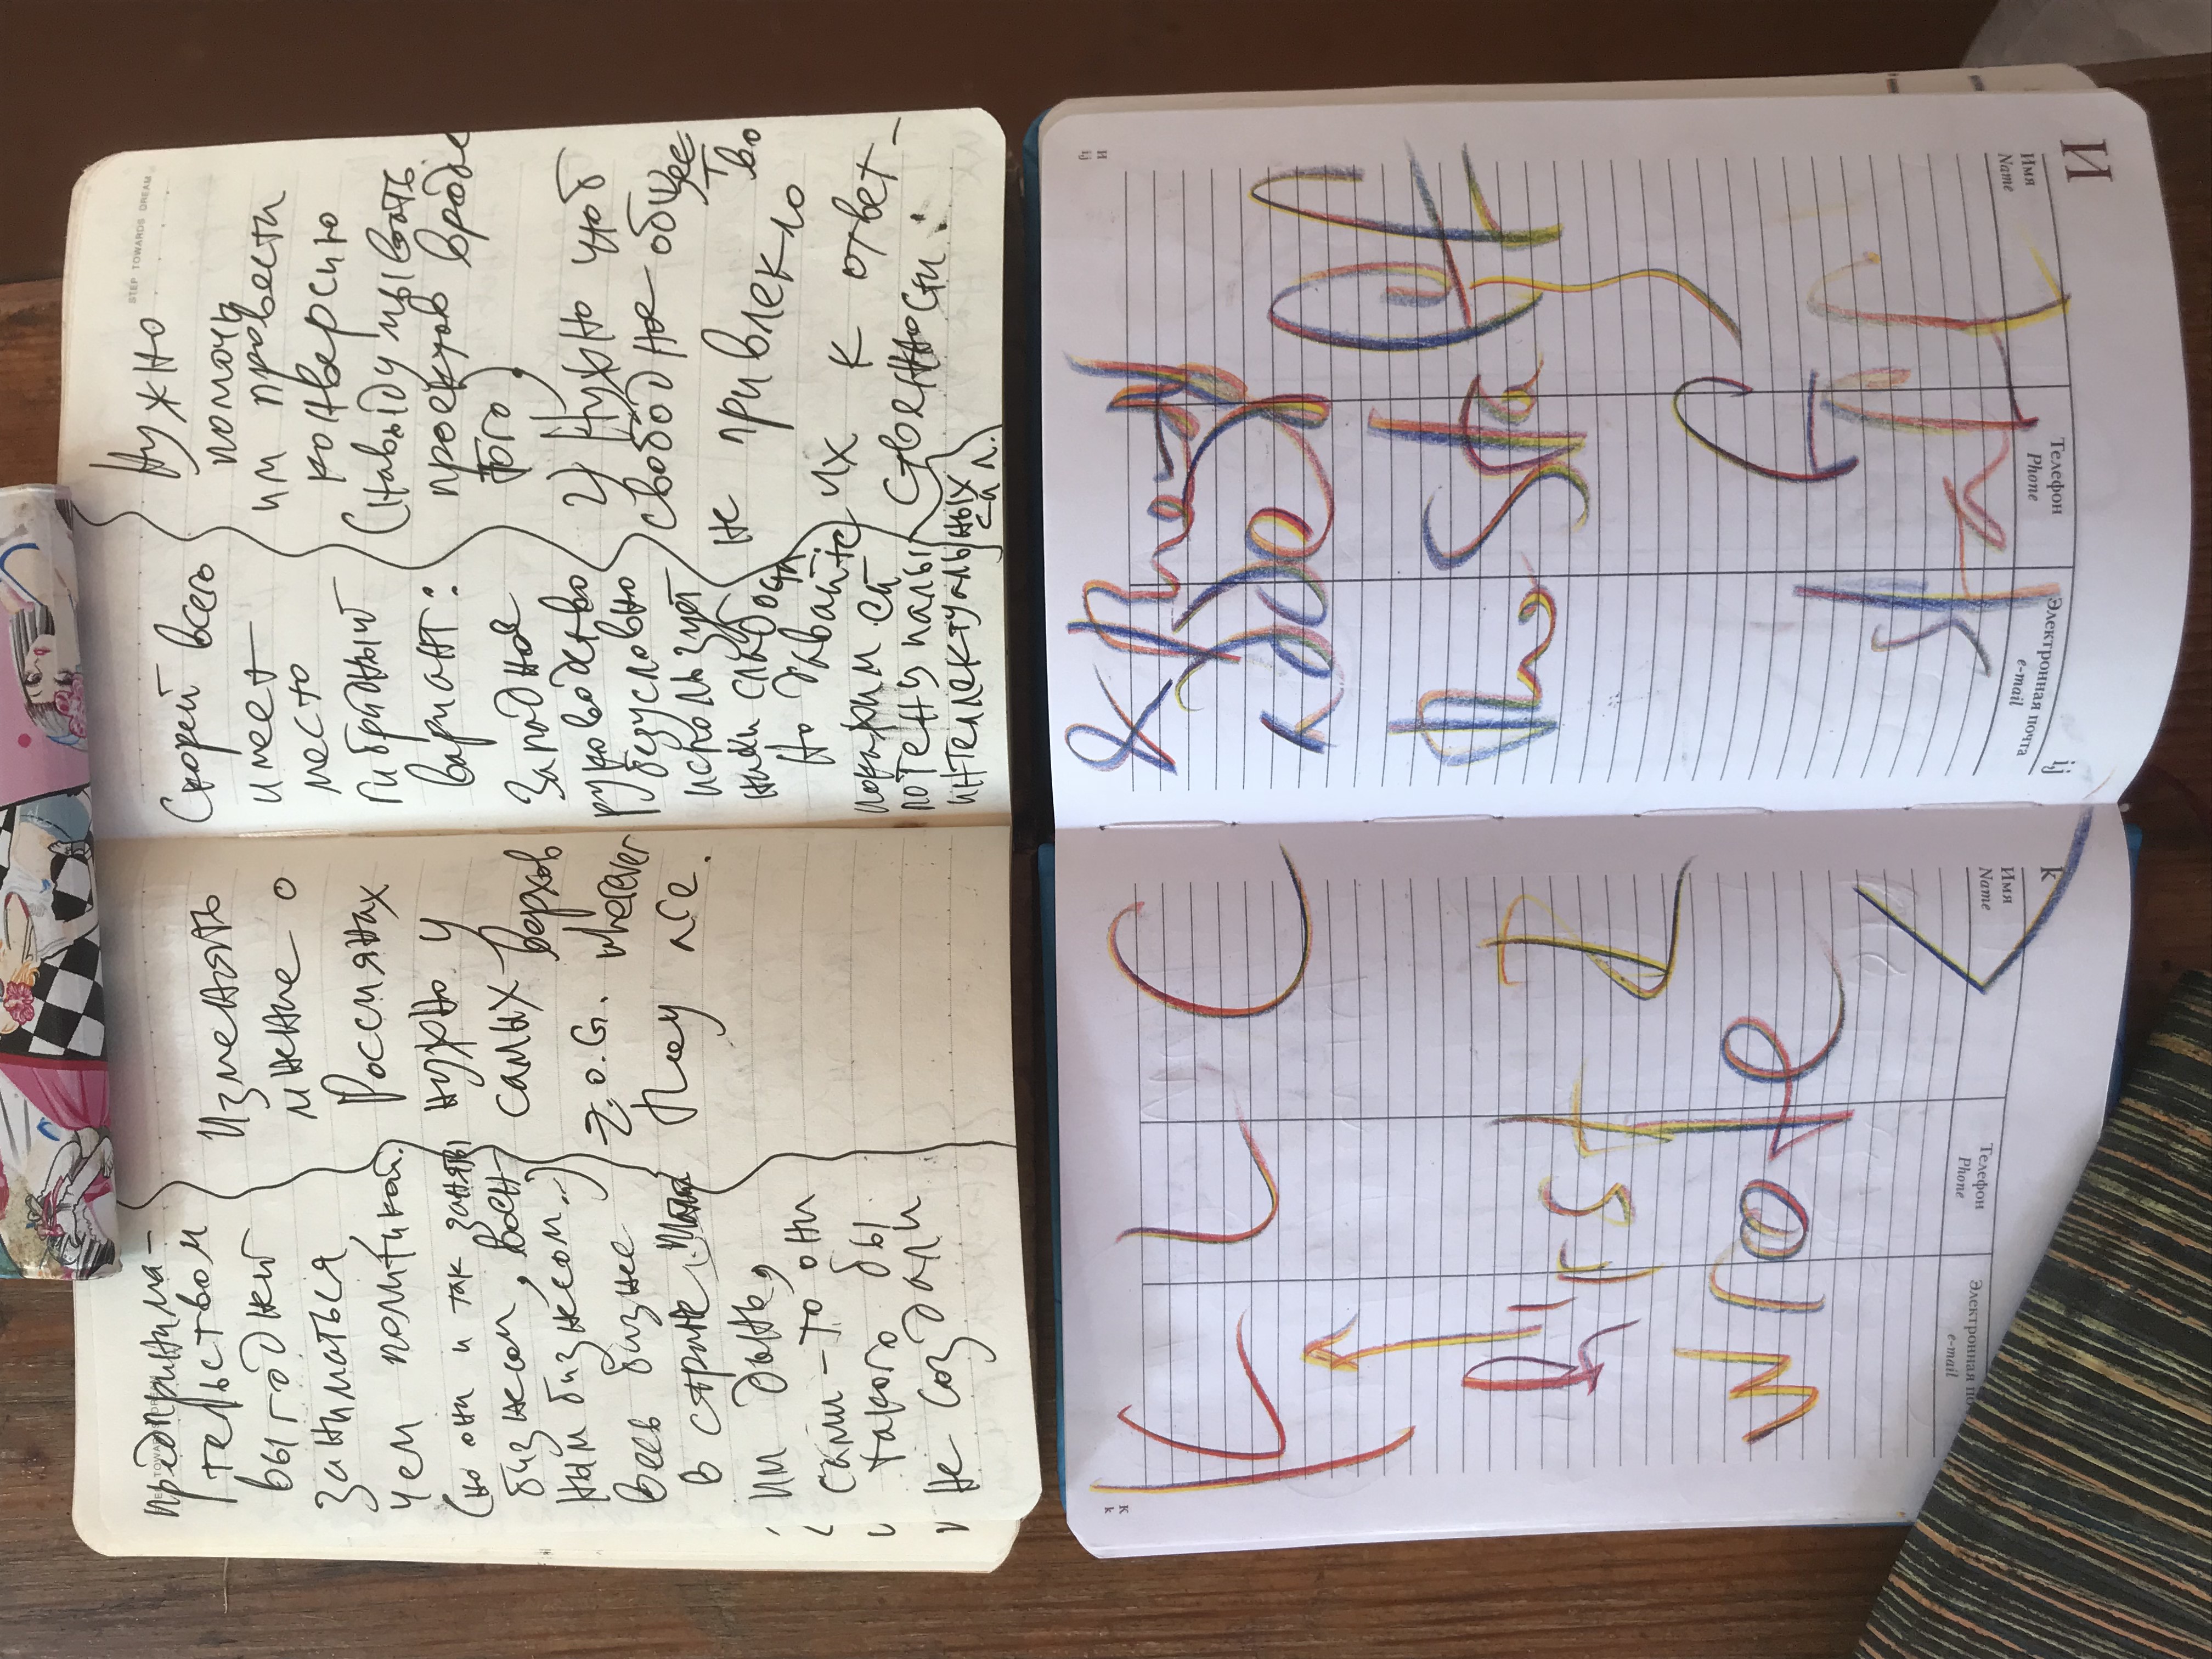 STEP TOWARDS DREAM
предпринима-
тельством
выгодней
заниматься,
чем политикой.
(но они и так заняты
бизнесом, воен-
ным бизнесом.)
весь бизнес
в стране
им дань,
сами-то они
такого бы
не создали
Изменять
мнение о
Россиянах
нужно у
самых верхов
Z.O.G. wherever
they are.
STEP TOWARDS DREAM
Скорей всего
имеет
место
гибридный
вариант:
Западное
руководство
безусловно
использует
слабости
Но давайте
покажим ей
потенциалы
интеллектуальных
сил.
Нужно
помочь
им провести
конверсию
(навыдумывать
проектов вроде
того)
2) Нужно чтоб
свободное общество
не привлекло
их к ответ-
ственности:
к K
LLC
First I
wrote
Электронная почта
e-mail
Телефон
Phone
Имя
Name
K
и ij
& then
added
the staff
staff
Электронная почта
e-mail
Телефон
Phone
Имя
Name
ij
И